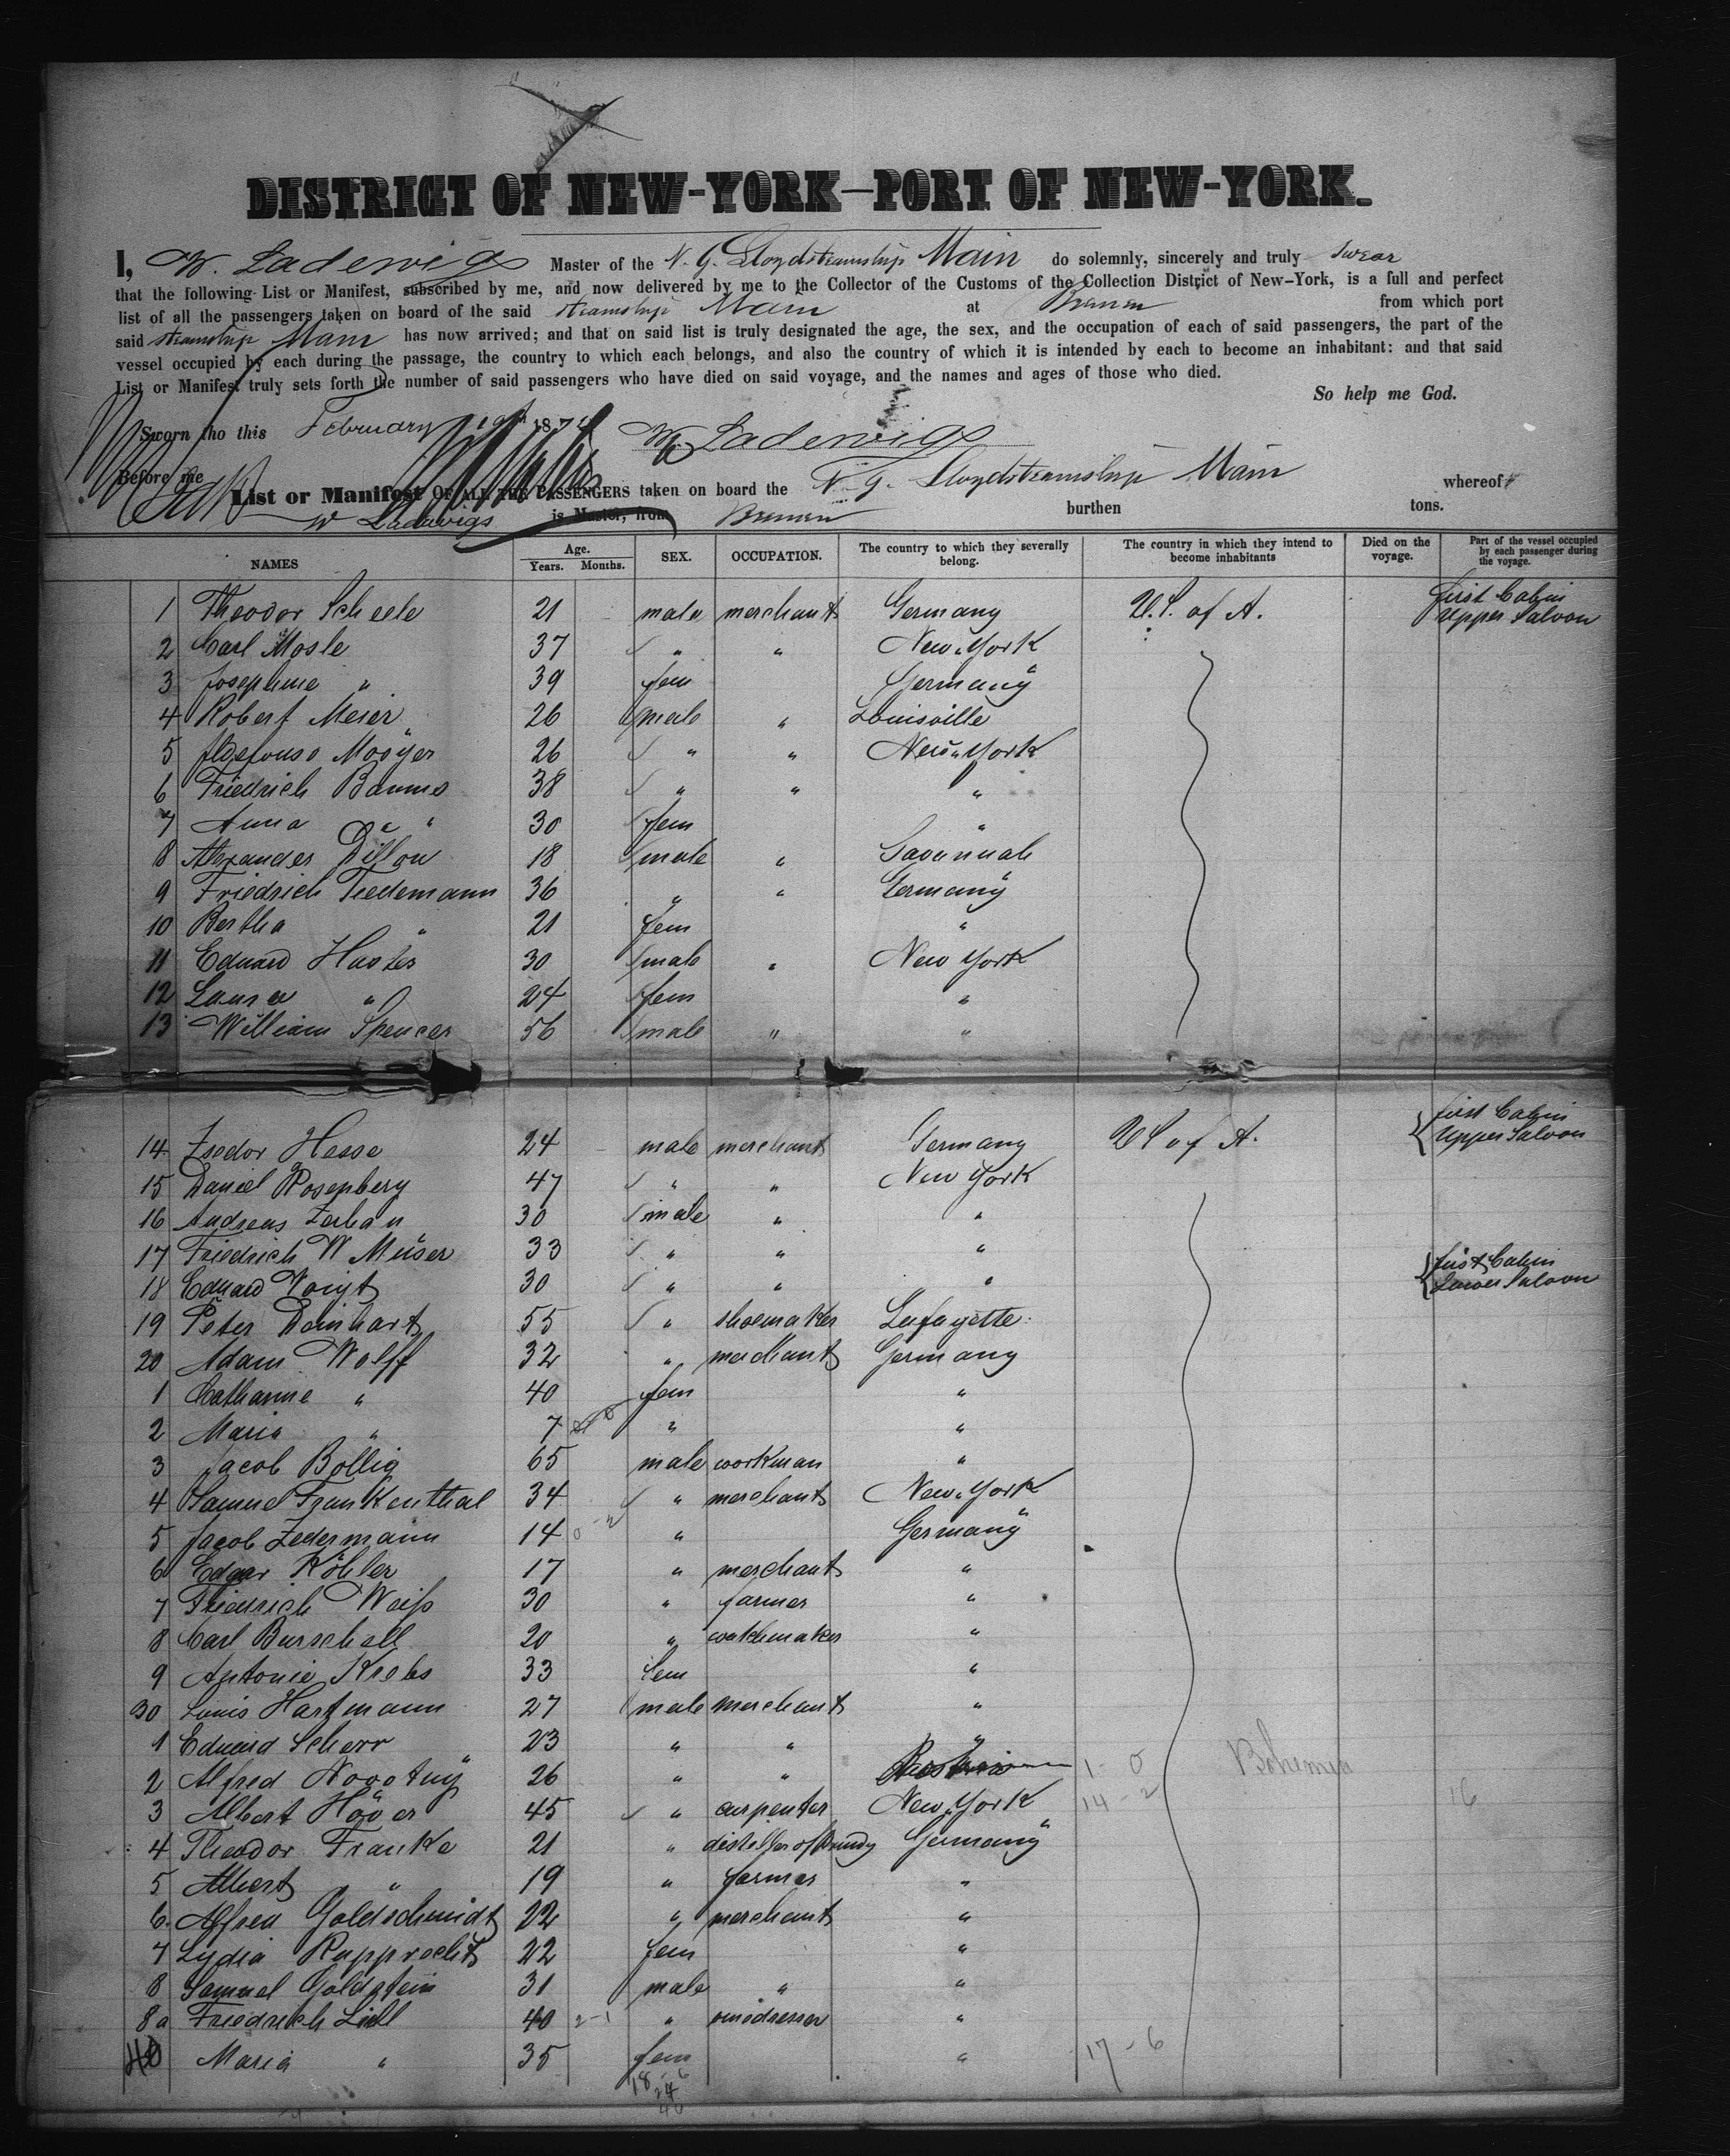 DISTRICT OF NEW-YORK—PORT OF NEW-YORK.
I, W. Ladewigs Master of the N. G. Lloydsteamship Main do solemnly, sincerely and truly swear
that the following List or Manifest, subscribed by me, and now delivered by me to the Collector of the Customs of the Collection District of New-York, is a full and perfect
list of all the passengers taken on board of the said steamship Main at Bremen from which port
said steamship Main has now arrived; and that on said list is truly designated the age, the sex, and the occupation of each of said passengers, the part of the
vessel occupied by each during the passage, the country to which each belongs, and also the country of which it is intended by each to become an inhabitant: and that said
List or Manifest truly sets forth the number of said passengers who have died on said voyage, and the names and ages of those who died.
So help me God.
Sworn tho this February 187 W. Ladewigs
Before me
List or Manifest OF ALL THE PASSENGERS taken on board the N. G. Lloydsteamship Main whereof
W Ladewigs is Master, from Bremen burthen tons.
NAMES Age. Years. Months. SEX. OCCUPATION. The country to which they severally belong. The country in which they intend to become inhabitants Died on the voyage. Part of the vessel occupied by each passenger during the voyage.
1 Theodor Scheele 21 male merchant Germany U.S. of A. first Cabin Upper Saloon
2 Carl Mosle 37 " " New York
3 Josephine " 39 fem Germany
4 Robert Meier 26 male " Louisville
5 Ildefonso Mooyer 26 " " New York
6 Friedrich Baums 38 " " "
7 Anna " 30 fem "
8 Alexander Dillon 18 male " Savannah
9 Friedrich Tiedemann 36 " " Germany
10 Bertha " 21 fem "
11 Eduard 30 male " New York
12 Laura " 24 fem "
13 William Spencer 56 male " "
14 Isodor Hesse 24 male merchant Germany US of A. first Cabin Upper Saloon
15 Daniel Rosenberg 47 " " New York
16 Andreas 30 male " "
17 Friedrich W Müser 33 " " " first Cabin Lower Saloon
18 Eduard Voigt 30 " " "
19 Peter Dainhart 55 " shoemaker Lafayette
20 Adam Wolff 32 " merchant Germany
1 Catharine " 40 fem "
2 Maria " 7 " "
3 Jacob Bollig 65 male workman "
4 Samuel Frankenthal 34 " merchant New York
5 Jacob Ledermann 14 " Germany
6 Edgar Köhler 17 " merchant "
7 Friedrich Weiß 30 " farmer "
8 Carl Burschell 20 " watchmaker "
9 Antonie Krebs 33 fem "
30 Louis Hartmann 27 male merchant "
1 Eduard Scherr 23 " " "
2 Alfred Novotny 26 " " 1 - 0 Bohemia
3 Albert Höver 45 " carpenter New York 14 - 2 16
4 Theodor Franke 21 " distiller of Brandy Germany
5 Albert " 19 " farmer "
6 Alfred Goldschmidt 22 " merchant "
7 Lydia Rupprecht 22 fem "
8 Samuel Goldstein 31 male " "
8a Friedrich Lidl 40 2-1 " vinedresser "
40 Maria " 35 fem " 17 - 6
18 - 6
24